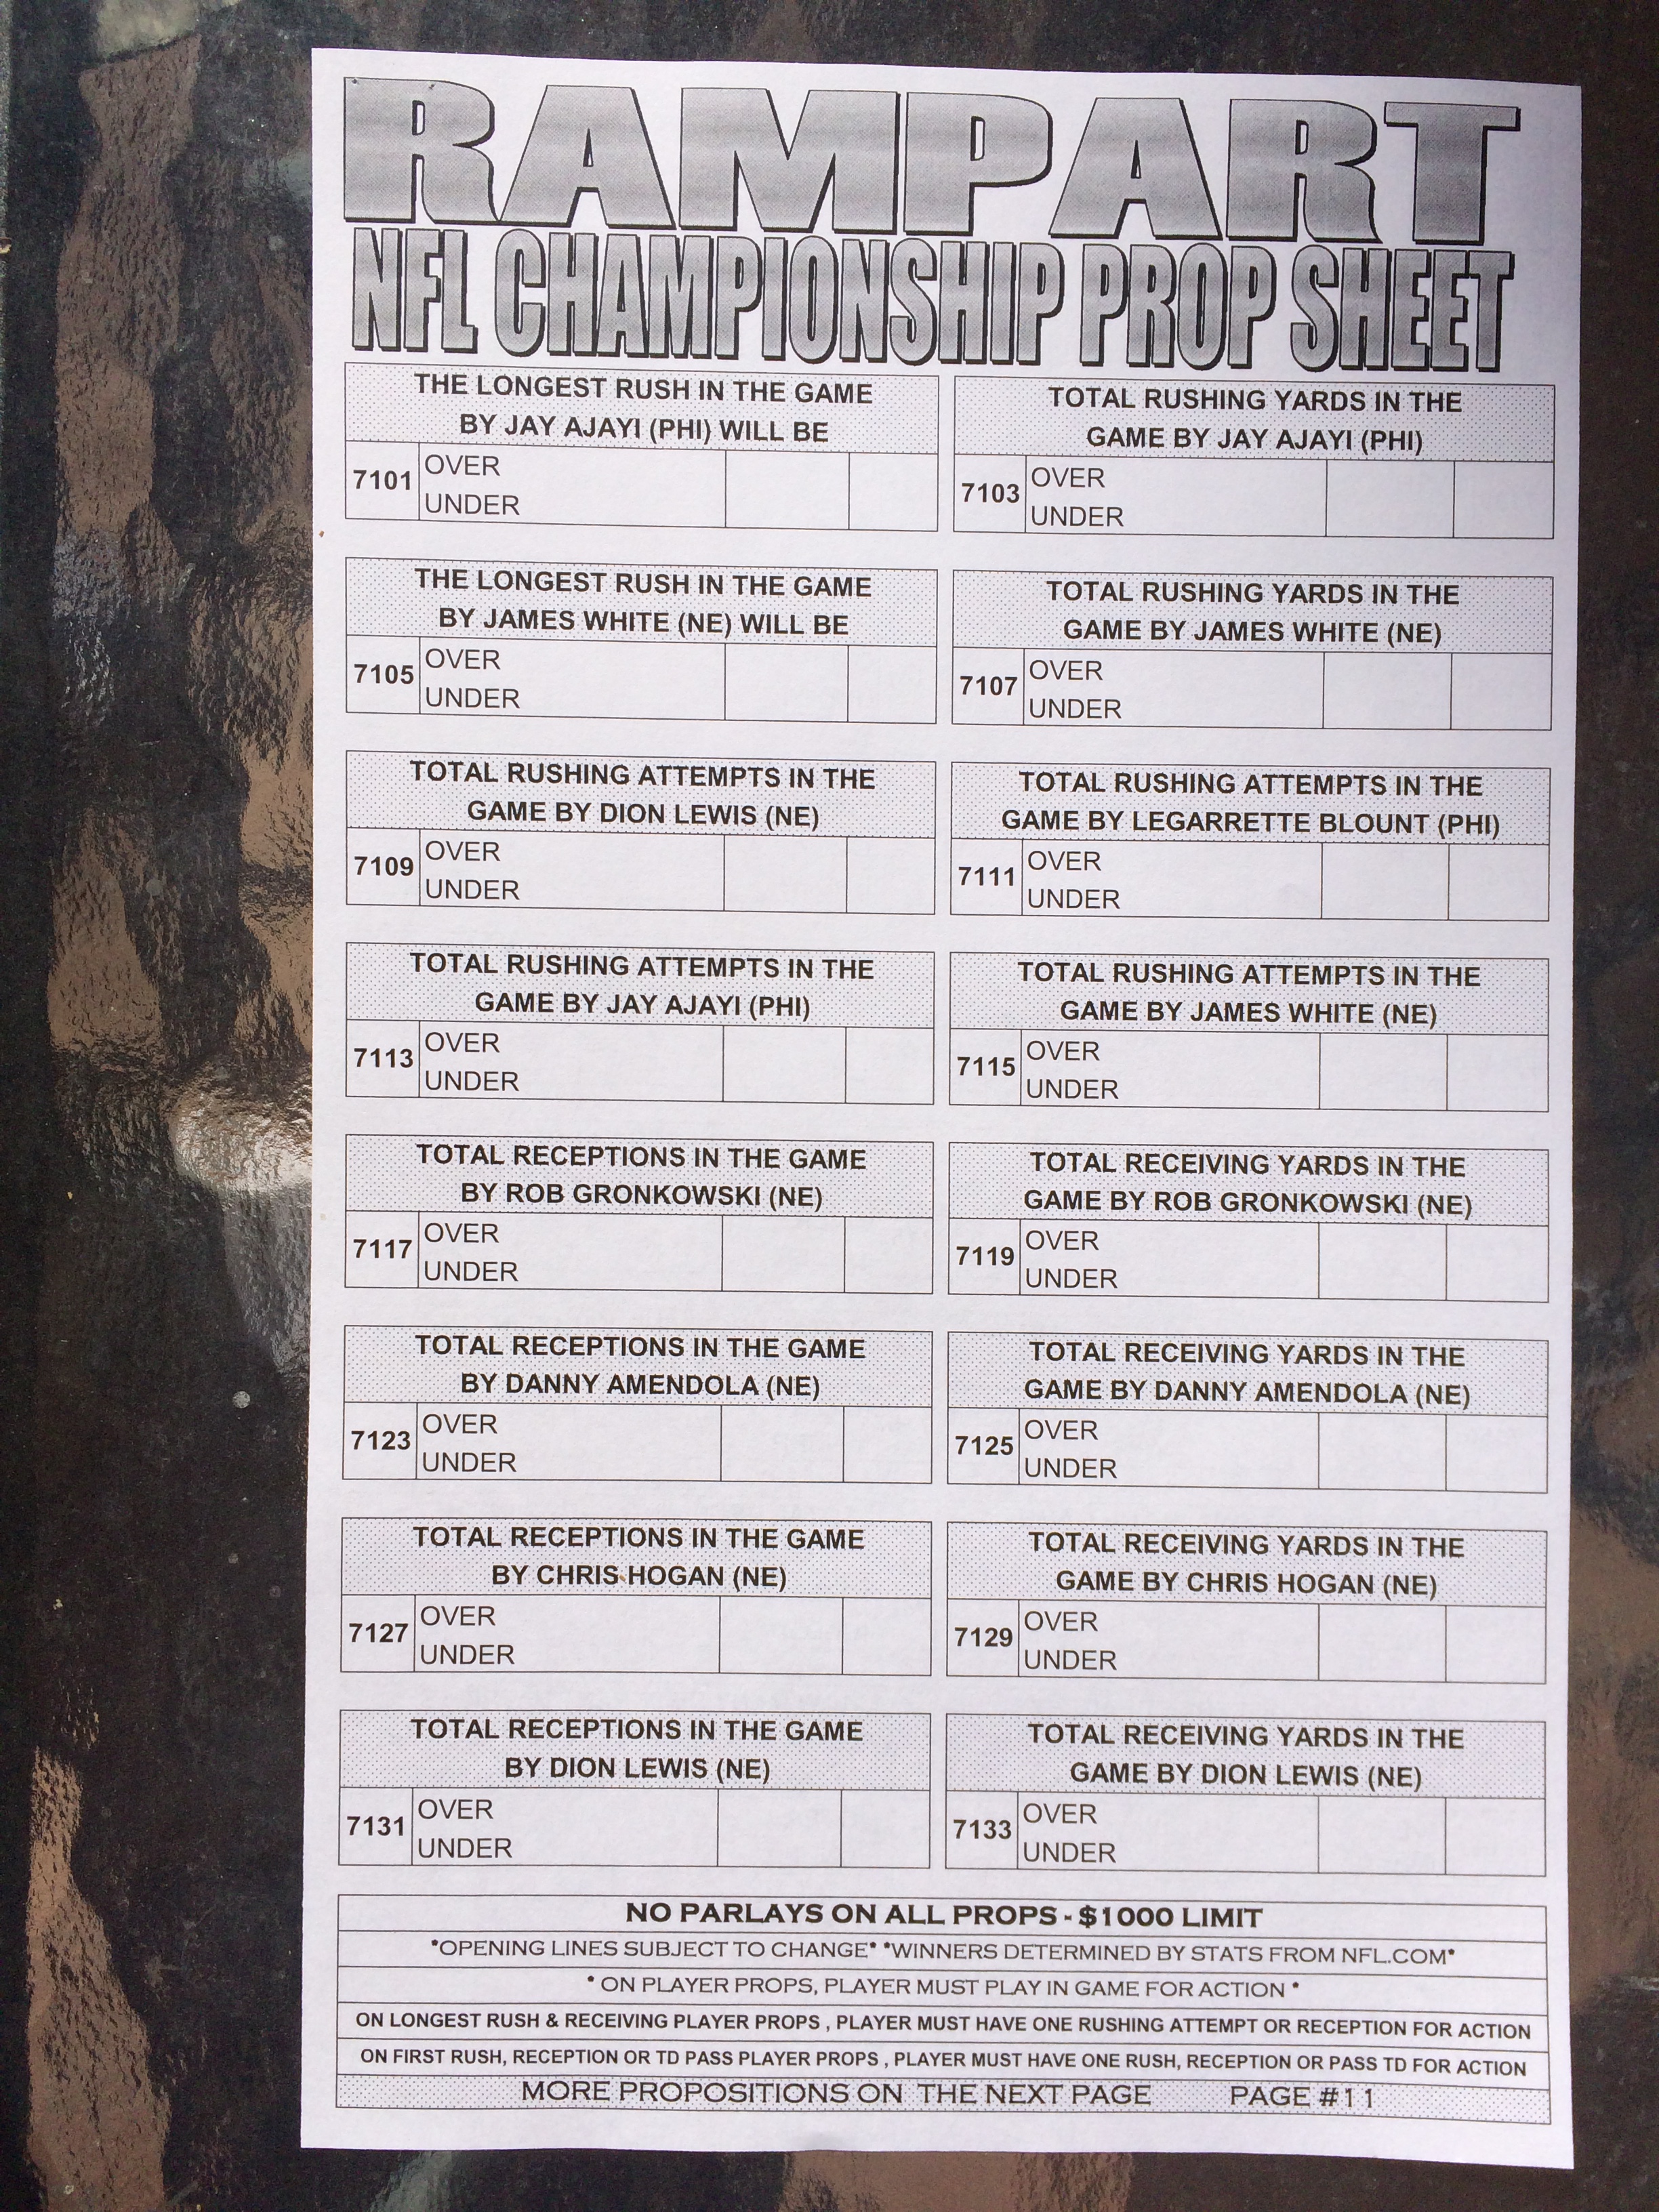 RAMPART
NFL CHAMPIONSHIP PROP SHEET
THE LONGEST RUSH IN THE GAME
BY JAY AJAYI (PHI) WILL BE
7101
OVER
UNDER
TOTAL RUSHING YARDS IN THE
GAME BY JAY AJAYI (PHI)
7103
OVER
UNDER
THE LONGEST RUSH IN THE GAME
BY JAMES WHITE (NE) WILL BE
7105
OVER
UNDER
TOTAL RUSHING YARDS IN THE
GAME BY JAMES WHITE (NE)
7107
OVER
UNDER
TOTAL RUSHING ATTEMPTS IN THE
GAME BY DION LEWIS (NE)
7109
OVER
UNDER
TOTAL RUSHING ATTEMPTS IN THE
GAME BY LEGARRETTE BLOUNT (PHI)
7111
OVER
UNDER
TOTAL RUSHING ATTEMPTS IN THE
GAME BY JAY AJAYI (PHI)
7113
OVER
UNDER
TOTAL RUSHING ATTEMPTS IN THE
GAME BY JAMES WHITE (NE)
7115
OVER
UNDER
TOTAL RECEPTIONS IN THE GAME
BY ROB GRONKOWSKI (NE)
7117
OVER
UNDER
TOTAL RECEIVING YARDS IN THE
GAME BY ROB GRONKOWSKI (NE)
7119
OVER
UNDER
TOTAL RECEPTIONS IN THE GAME
BY DANNY AMENDOLA (NE)
7123
OVER
UNDER
TOTAL RECEIVING YARDS IN THE
GAME BY DANNY AMENDOLA (NE)
7125
OVER
UNDER
TOTAL RECEPTIONS IN THE GAME
BY CHRIS HOGAN (NE)
7127
OVER
UNDER
TOTAL RECEIVING YARDS IN THE
GAME BY CHRIS HOGAN (NE)
7129
OVER
UNDER
TOTAL RECEPTIONS IN THE GAME
BY DION LEWIS (NE)
7131
OVER
UNDER
TOTAL RECEIVING YARDS IN THE
GAME BY DION LEWIS (NE)
7133
OVER
UNDER
NO PARLAYS ON ALL PROPS - $1000 LIMIT
*OPENING LINES SUBJECT TO CHANGE* *WINNERS DETERMINED BY STATS FROM NFL.COM*
* ON PLAYER PROPS, PLAYER MUST PLAY IN GAME FOR ACTION *
ON LONGEST RUSH & RECEIVING PLAYER PROPS , PLAYER MUST HAVE ONE RUSHING ATTEMPT OR RECEPTION FOR ACTION
ON FIRST RUSH, RECEPTION OR TD PASS PLAYER PROPS , PLAYER MUST HAVE ONE RUSH, RECEPTION OR PASS TD FOR ACTION
MORE PROPOSITIONS ON THE NEXT PAGE PAGE #11